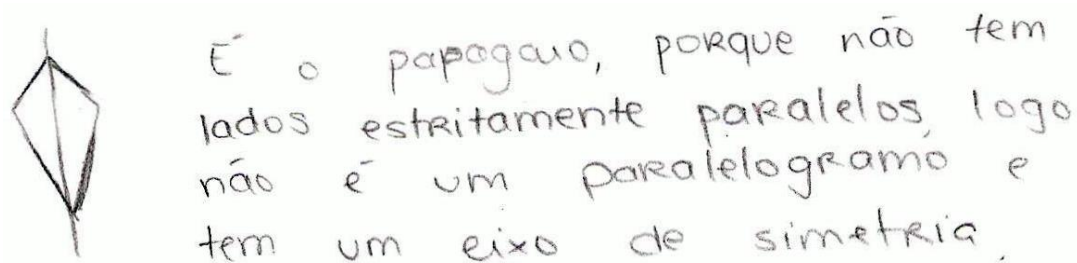 É o papagaio, porque não tem
lados estritamente paralelos, logo
não é um paralelogramo e
tem um eixo de simetria.